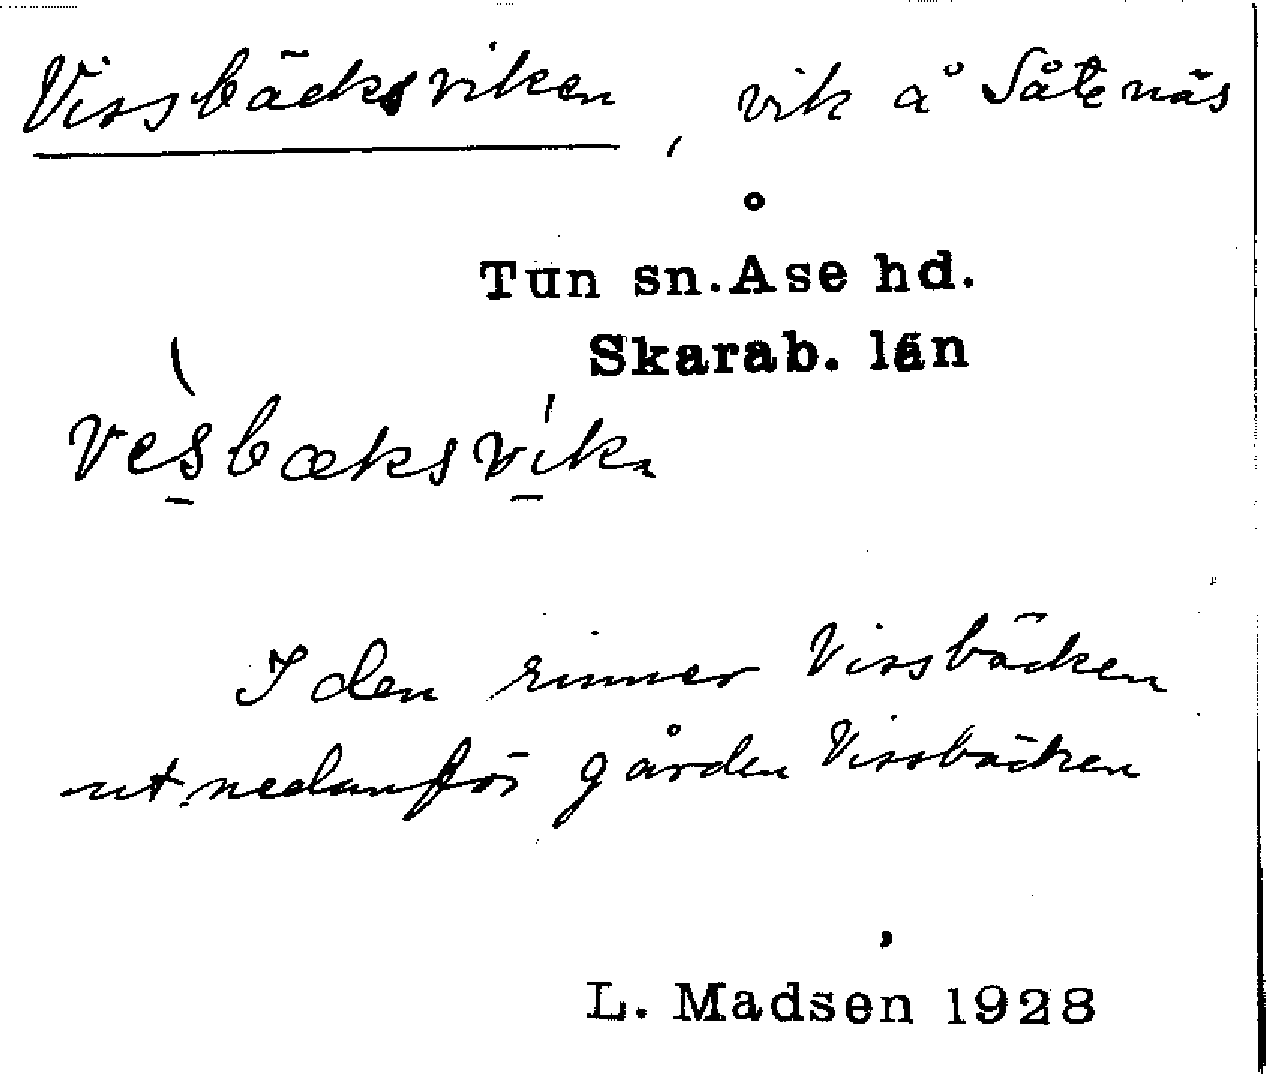 Vissbäcksviken, vik å Såtenäs
Tun sn. Åse hd.
Skarab. län
vèsbæksvíka
I den rinner Vissbäcken
ut nedanför gården Vissbäcken
L. Madsen 1928